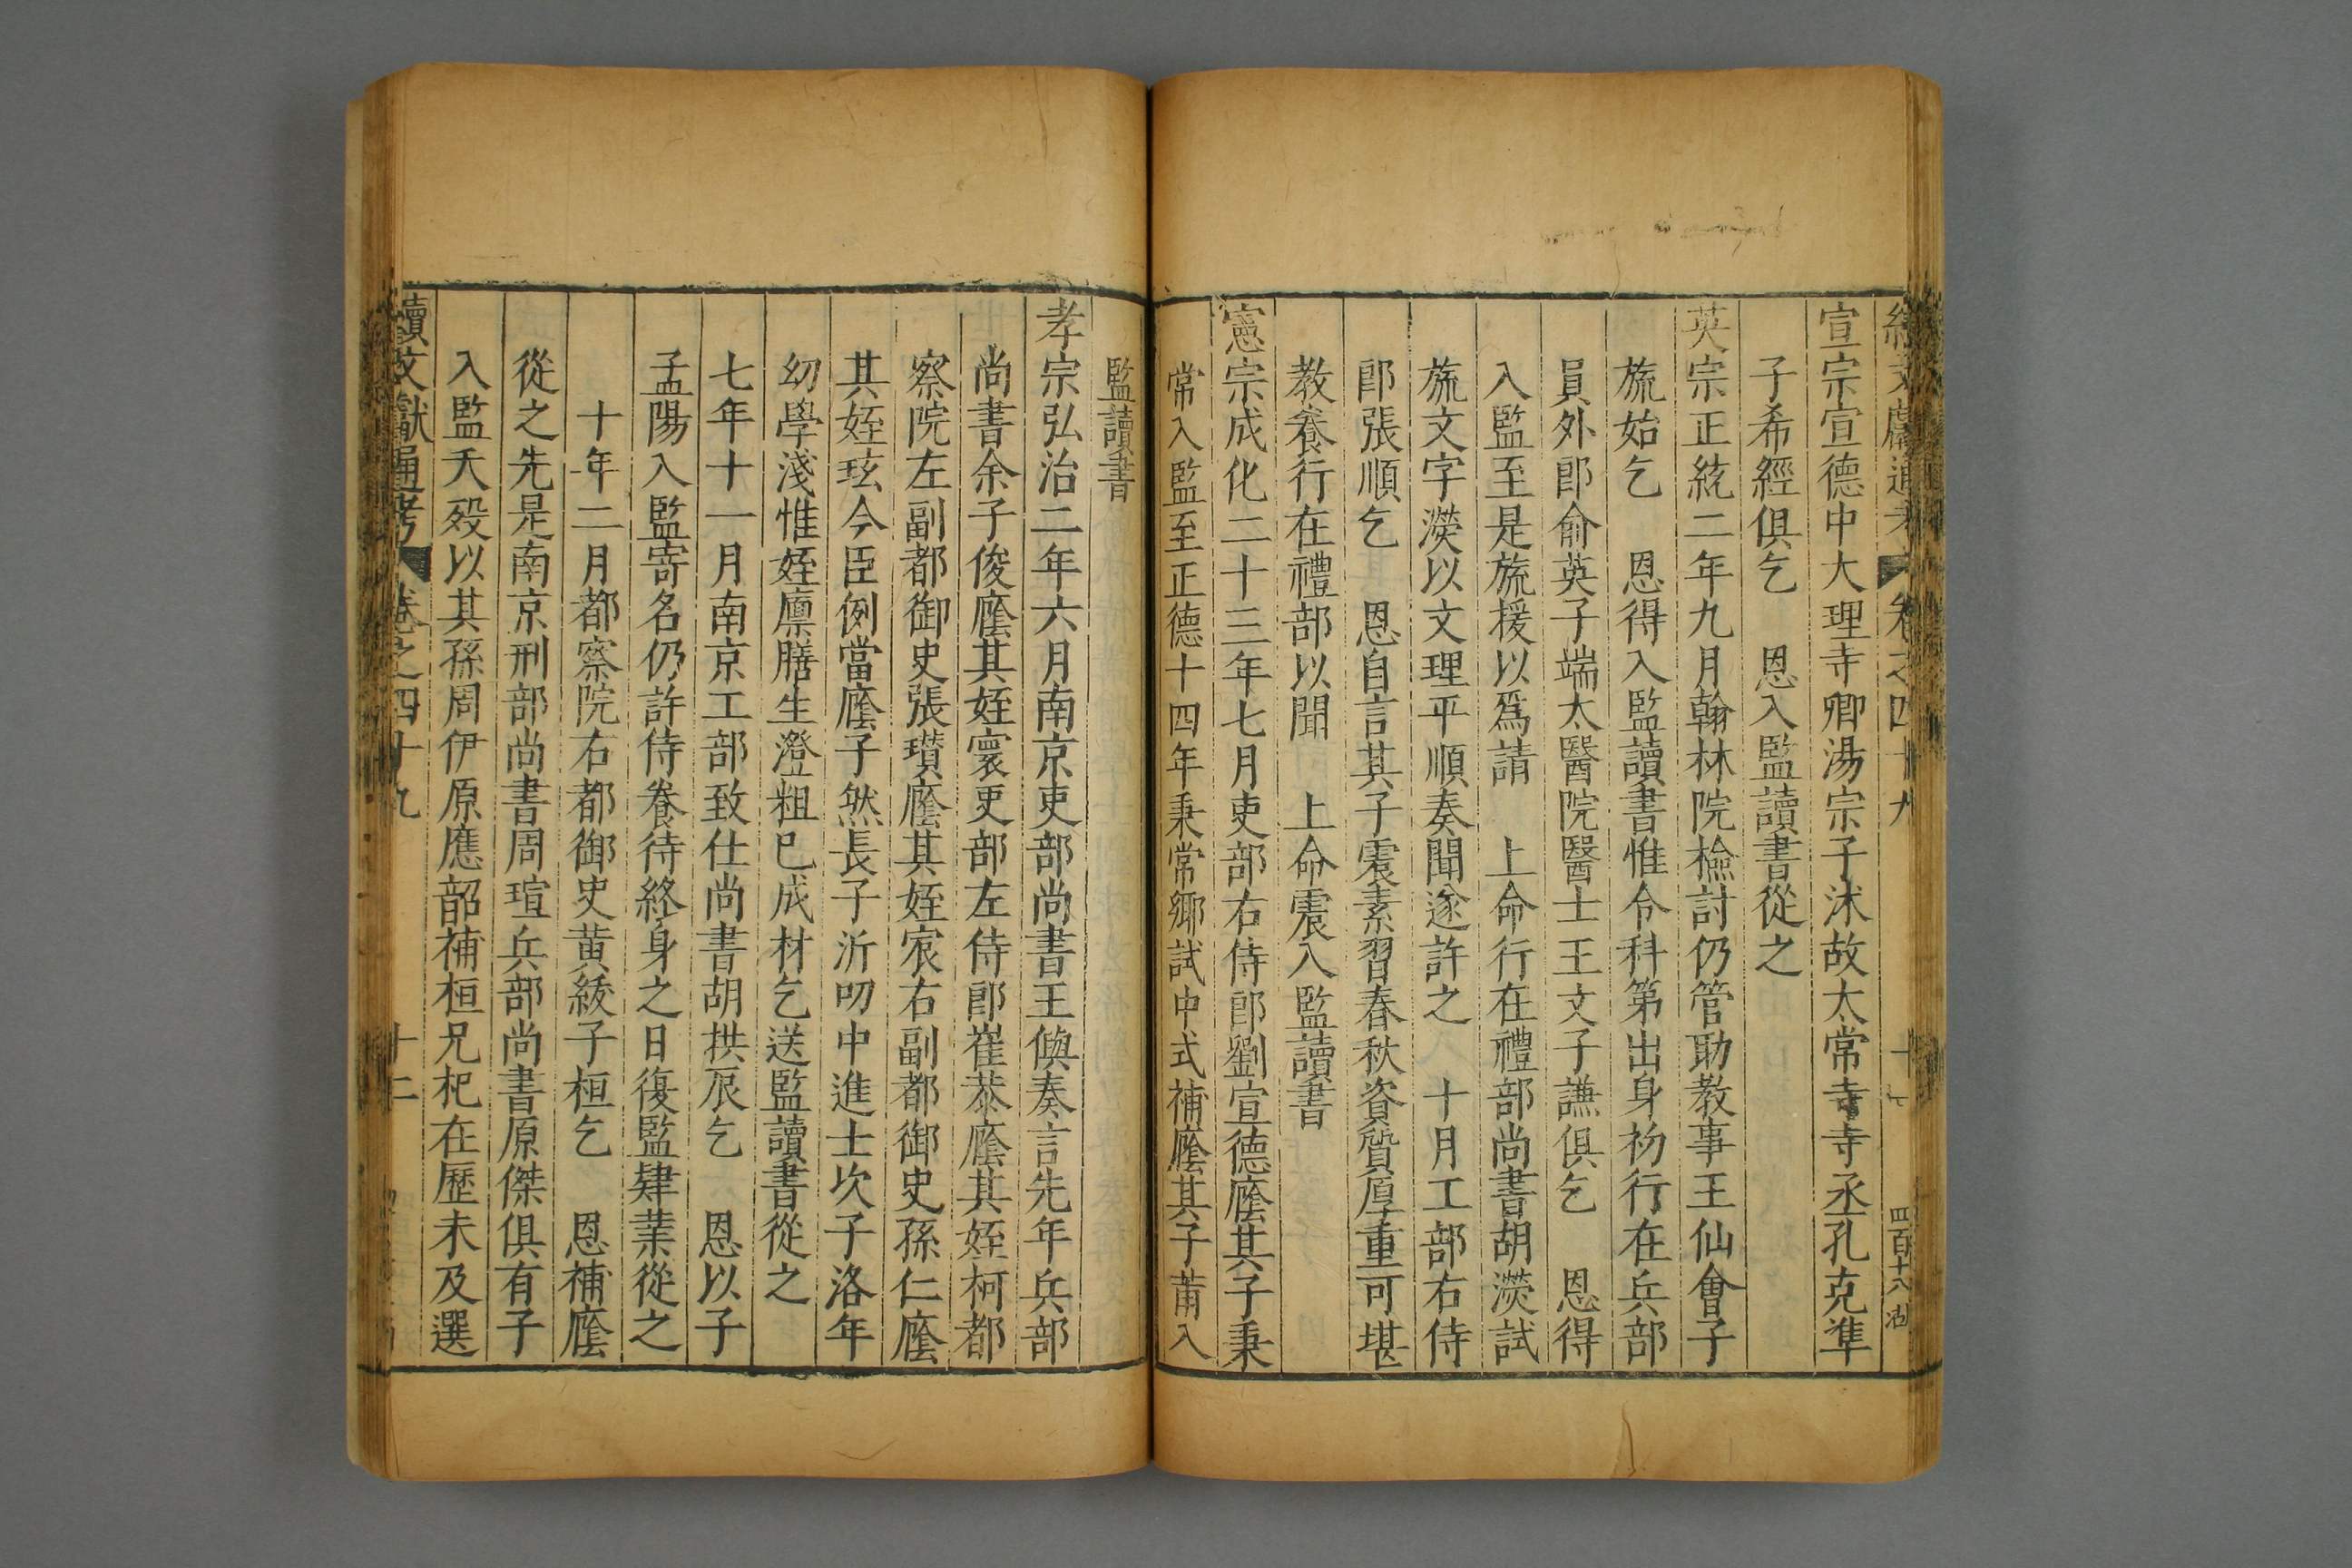 續文獻通考 卷之四十九 十一 四百十八
宣宗宣德中大理寺卿湯宗子沭故太常寺寺丞孔克準
子希經俱乞 恩入監讀書從之
英宗正統二年九月翰林院檢討仍管助教事王仙會子
旒始乞 恩得入監讀書惟令科第出身初行在兵部
員外郎俞英子端太醫院醫士王文子謙俱乞 恩得
入監至是旒援以爲請 上命行在禮部尚書胡濙試
旒文字濙以文理平順奏聞遂許之 十月工部右侍
郎張順乞 恩自言其子震素習春秋資質厚重可堪
教養行在禮部以聞 上命震入監讀書
憲宗成化二十三年七月吏部右侍郎劉宣德廕其子秉
常入監至正德十四年秉常鄉試中式補廕其子莆入
監讀書
孝宗弘治二年六月南京吏部尚書王㒜奏言先年兵部
尚書余子俊廕其姪寰吏部左侍郎崔恭廕其姪柯都
察院左副都御史張瓚廕其姪宸右副都御史孫仁廕
其姪玹今臣例當廕子然長子沂叨中進士次子洛年
幼學淺惟姪廩膳生澄粗已成材乞送監讀書從之
七年十一月南京工部致仕尚書胡拱辰乞 恩以子
孟陽入監寄名仍許侍養待終身之日復監肄業從之
十年二月都察院右都御史黃紱子桓乞 恩補廕
從之先是南京刑部尚書周瑄兵部尚書原傑俱有子
入監夭歿以其孫周伊原應韶補桓兄杞在歷未及選
續文獻通考 卷之四十九 十二